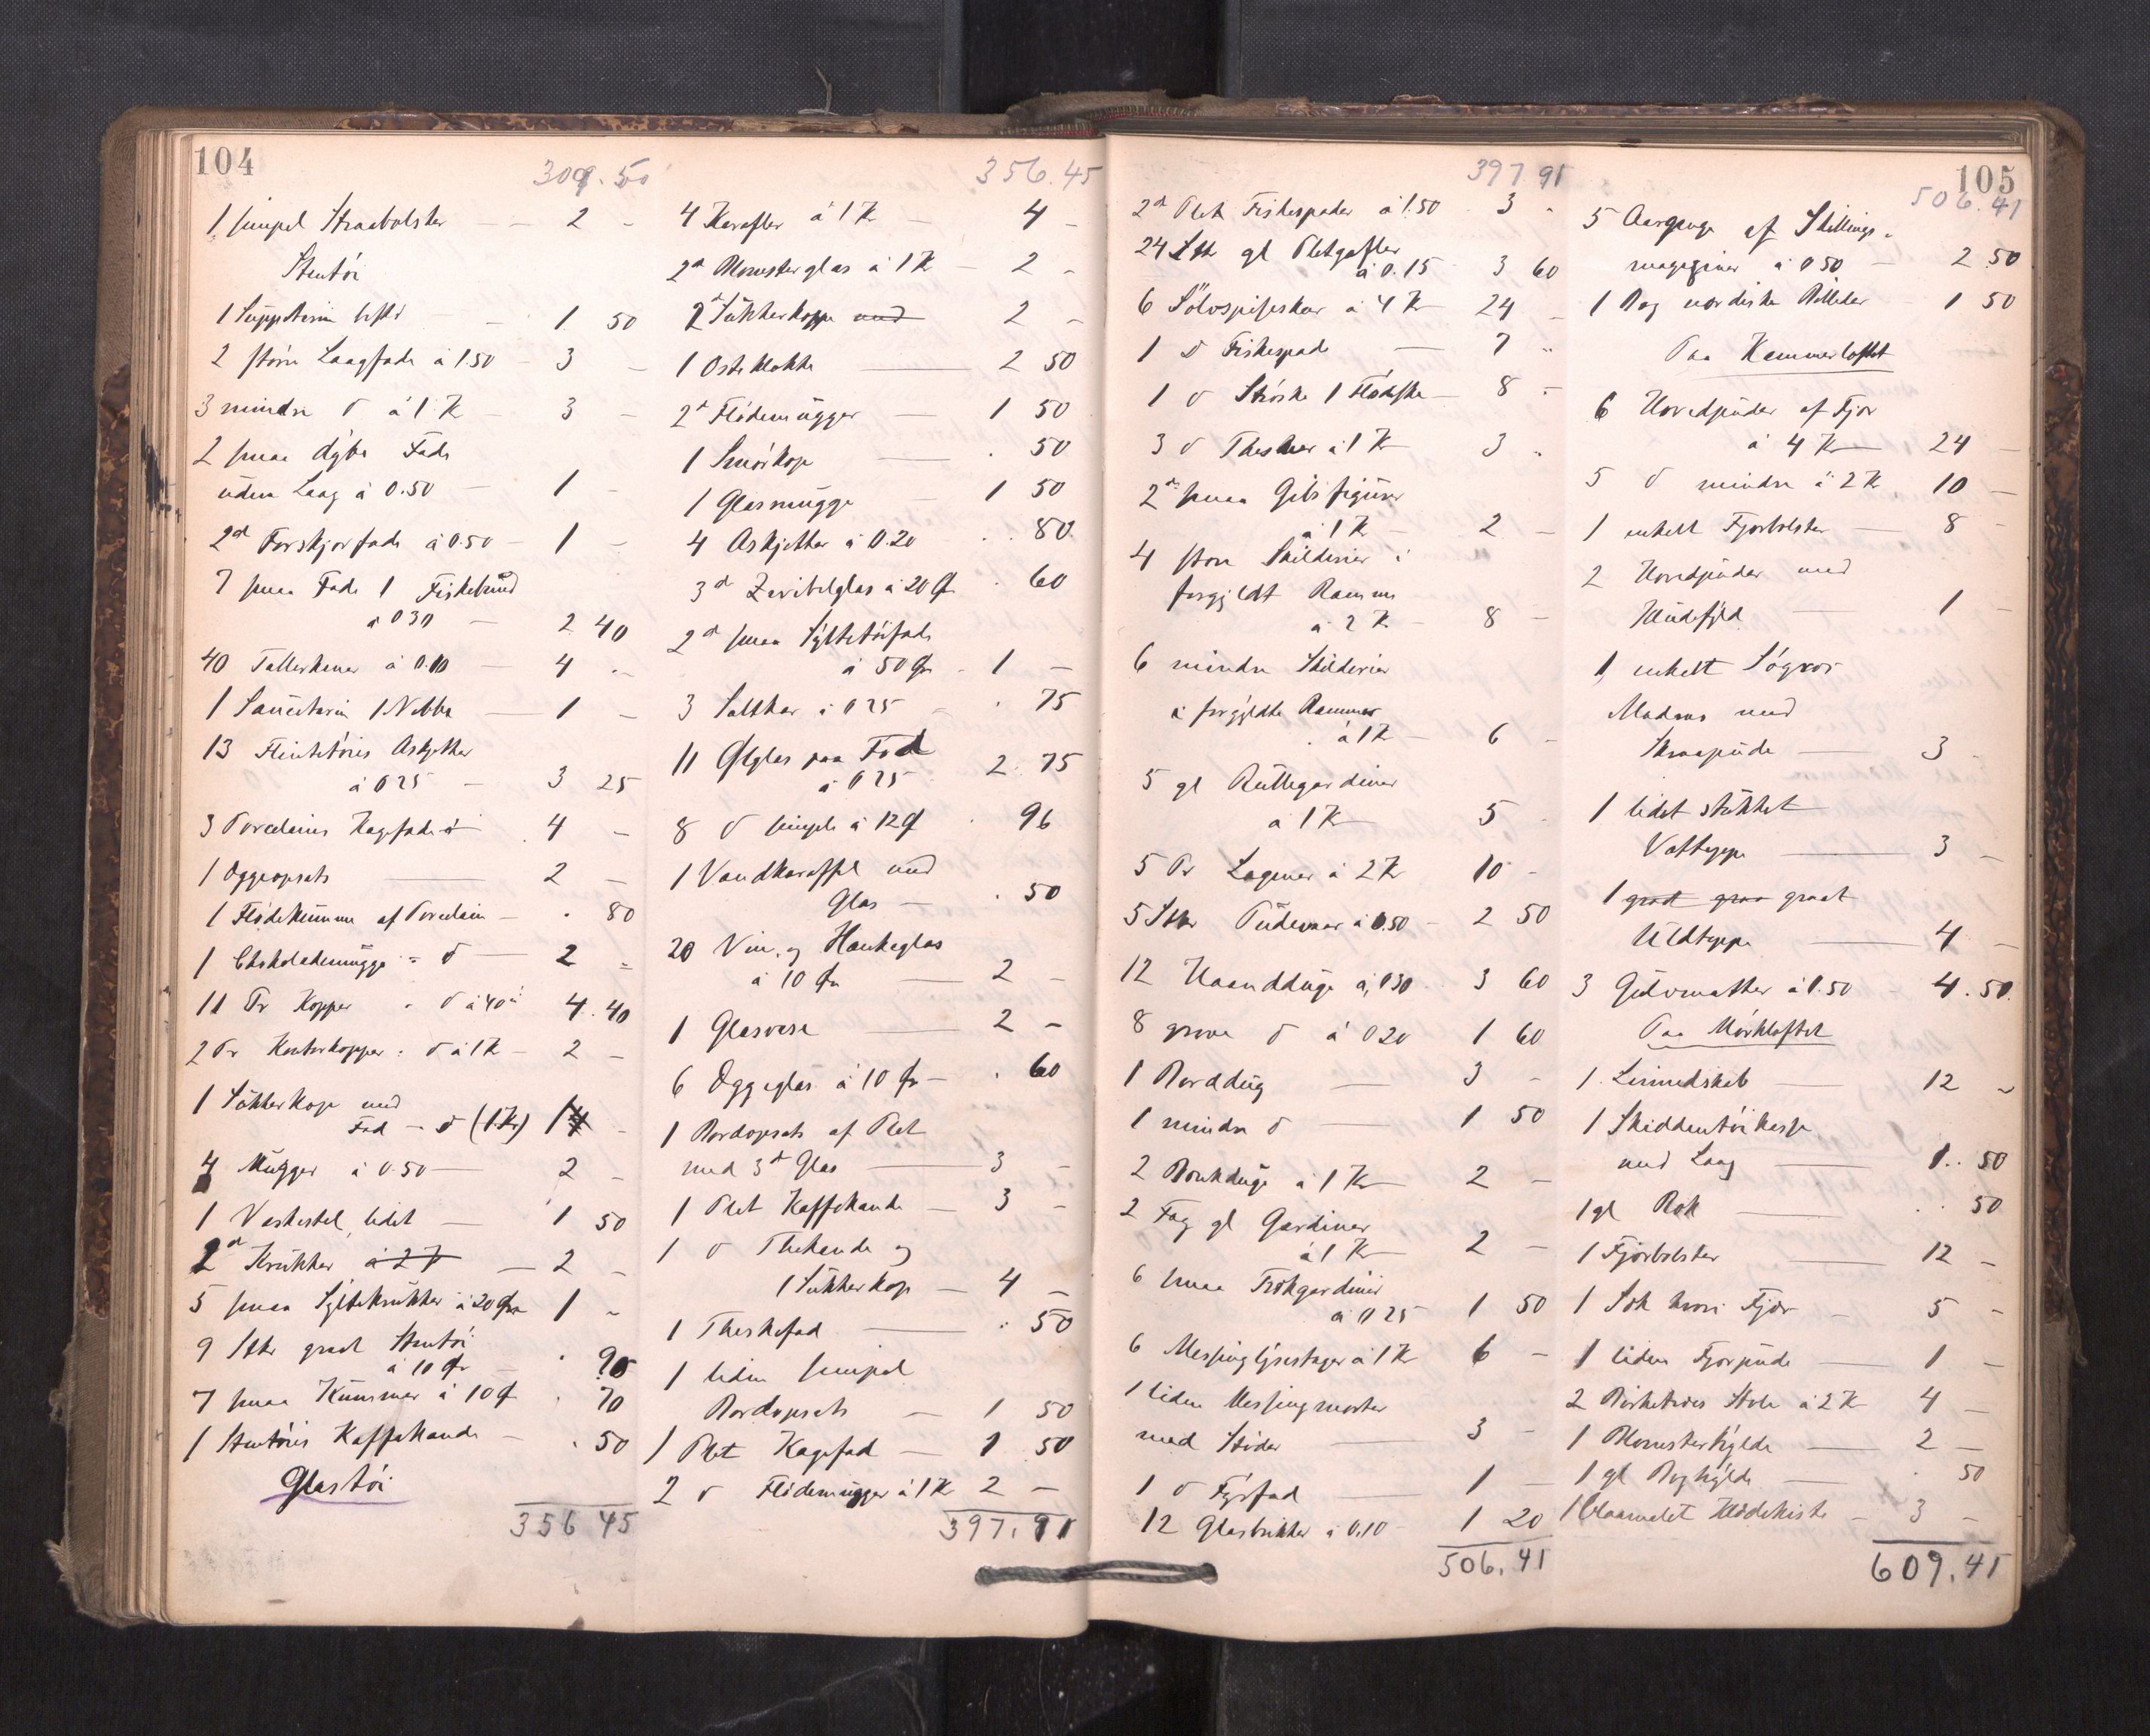 104
309.50
1 simpel Straabolster — 2 -
Stentöi
1 Suppeterin - 1 50
2 større Laagfade á 1.50 - 3 -
3 mindre d á 1 K - 3 -
2 smaa dybe Fade
uden Laag á 0.50 - 1 -
2d Forskjærfade á 0.50 - 1 -
7 smaa Fade 1 Fiskebund
á 0 30 - 2 40
40 Tallerkener á 0.10 - 4 -
1 Sauceterin 1 Nebba - 1 -
13 Flintetöies Askjetter
á 0 25 - 3 25
3 Porcelains Kagefade 4 -
1 Eggeopsats — 2 -
1 Flödekumme af Porcelain - . 80
1 Chokolademugge = d — 2 =
11 Pr Kopper = d á 40 4. 40
2 Pr Kopper = d á 1 K - 2 -
1 Sukkerkop med
Fad - d (1 Kr) 1 -
4 Mugger á 0.50 — 2 -
1 Vaskestel, lidet — 1 50
2d Krukker á 2 K — 2 -
5 smaa Syltekrukker á 20 Øre 1 -
9 Stkr graat Stentöi
á 10 Ør - . 90
7 smaa Kummer á 10 Ø . 70
1 Stentöies Kaffekande - . 50
Glastöi
356 45
356.45
4 Karafler á 1 K - 4 -
2d Blomsterglas á 1 K - 2 -
2d Sukkerkoppe med 2 -
1 Osteklokke — 2 50
2d Flödemugger — 1 50
1 Smörkop — . 50
1 Glasmugge — 1 50
4 Askjetter á 0.20 . . 80
3d Zwibelglas á 20 Ø . 60
2d smaa Syltetöifade
á 50 Ør - 1 -
3 Saltkar á 0 25 - . 75
11 Ølglas paa Fod
á 0 25 2. 75
8 d simple á 12 Ø . 96
1 Vandkaraffel med
Glas — . 50
20 Vin- og Hankeglas
á 10 Ør — 2 -
1 Glasvase — 2 -
6 Eggeglas á 10 Ør - . 60
1 Bordopsats af Plet
med 3d Glas — 3 -
1 Plet Kaffekande — 3 -
1 d Thekande og
1 Sukkerkop — 4 -
1 Theskefad — . 50
1 liden simpel
Bordopsats — 1 50
1 Plet Kagefad — 1 50
2 d Flödemugger á 1 K 2 -
397.91
105
397 91
2d Plet Fiskespader á 1.50 3 -
24 Stk gl Pletgafler
á 0.15 3 60
6 Sölvspiseskeer á 4 K 24 -
1 d Fiskespade — 7 -
1 d Ströske 1 Flödeske - 8 -
3 d Theskeer á 1 K 3 -
2d smaa Gibsfigurer
á 1 K - 2 -
4 store Skilderier i
forgyldt Ramme
á 2 K - 8 -
6 mindre Skilderier
i forgyldte Rammer
á 1 K - 6 -
5 gl Rullegardiner
á 1 K 5 -
5 Pr Lagener á 2 K 10 -
5 Stkr Pudevaar á 0.50 - 2 50
12 Haandduge á 0 30 . 3 60
8 grove d á 0 20 1 60
1 Borddug — 3 -
1 mindre d — 1 50
2 duge á 1 K — 2 -
2 Fag gl Gardiner
á 1 K 2 -
6 smaa Trækgardiner
á 0 25 1 50
6 Messinglysestager á 1 K 6 -
1 liden Messingmorter
med Stöder — 3 -
1 d Fyrfad — 1 -
12 Glasbrikker á 0,10 - 1 20
506.41
506.41
5 Aargange af Skillings-
magaziner á 0 50 - 2 50
1 Bog nordiske Billeder 1 50
Paa Kammerloftet
6 Hovedpuder af Fjær
á 4 K — 24 -
5 d mindre á 2 K 10 -
1 enkelt Fjærbolster — 8 -
2 Hovedpuder med
— 1 -
1 enkelt Søgræs
Madras med
Skraapude — 3 -
1 lidet stukket
Vatteppe — 3 -
1 graat graa graat
Uldteppe — 4 -
3 Gulvmatter á 1.50 - 4. 50
Paa Mörkloftet
1 Linnedskab — 12 -
1 Skiddentöikasse
med Laag — 1. 50
1 gl Rok — . 50
1 Fjærbolster — 12 -
1 Sæk hvori Fjær - 5 -
1 liden Fjærpude — 1 -
2 Birketræes Stole á 2 K 4 -
1 Blomsterhylde — 2 -
1 gl Boghylde — . 50
1 blaamalet Klædekiste - 3 -
609.41